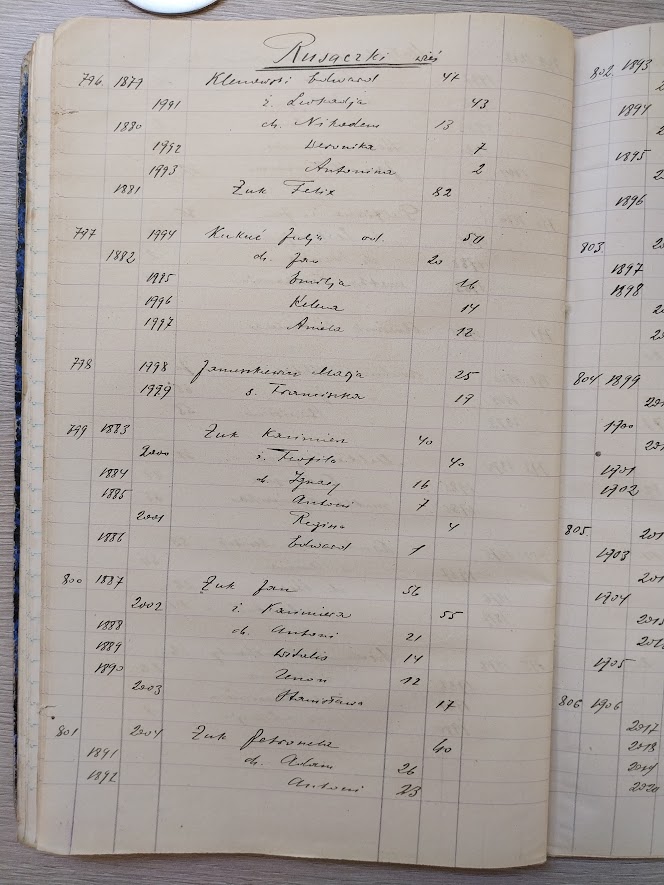 Rusaczki wieś
796 1879 Klemowski Edward 47
1991 ż. Leokadja 43
1880 ch. Nikodem 13
1992 Weronika 7
1993 Antonina 2
1881 Żuk Felix 82
797 1994 Kukuć Julja 50
1882 ch. Jan 20
1995 Emilja 16
1996 Helena 14
1997 Aniela 12
798 1998 Januszkiewicz Marja 25
1999 s. Franciszka 17
799 1883 Żuk Kazimierz 40
2000 ż. Teofila 40
1884 ch. Ignacy 16
1885 Antoni 7
2001 Regina 4
1886 Edward 1
800 1887 Żuk Jan 56
2002 ż. Kazimiera 55
1888 ch. Antoni 21
1889 Witalis 14
1890 Zenon 12
2003 Stanisława 17
801 2004 Żuk Petronela 60
1891 ch. Adam 26
1892 Antoni 23
802 1893
1894
1895
1896
803
1897
1898
804 1899
1900
1901
1902
805
1903
1904
1905
806 1906
2017
2018
2019
2020